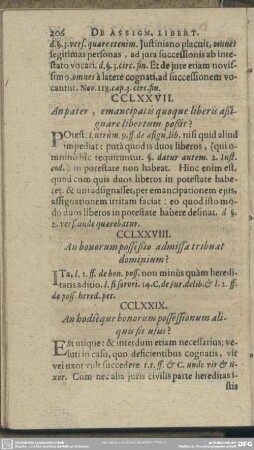 206 DE ASSIGN. LIBERT.
d. §. 3. vers. quare etenim. Justiniano placuit, omnes
legitimas personas, ad jura successionis ab inte-
stato vocari. d. §. 3. circ. fin. Et de jure etiam novis-
simo, omnes à latere cognati, ad successionem vo-
cantur. Nov. 118. cap. 3. circ. fin.
CCLXXVII.
An pater, emancipatis quoque liberis assi-
gnare libertum possit?
POtest. l. utrùm. 9. ff. de assign. lib. nisi quid aliud
impediat: putà quod is duos liberos, (qui o-
mninò hîc requiruntur. §. datur autem. 2. Inst.
eod.) in potestate non habeat. Hinc enim est,
quod cum quis duos liberos in potestate habe-
ret, & uni adsignasset, per emancipationem ejus,
assignationem irritam faciat: eo quod isto mo-
do duos liberos in potestate habere desinat. d. §.
2. vers. unde quærebatur.
CCLXXVIII.
An bonorum possessio admissa tribuat
dominium?
ITa, l. 1. ff. de bon. poss. non minùs quàm heredi-
tatis aditio. l. si sorori. 14. C. de jur. delib. & l. 2. ff.
de poss. hered. pet.
CCLXXIX.
An hodièque bonorum possessionum ali-
quis sit usus?
ESt utique: & interdum etiam necessarius; ve-
luti in casu, quo deficientibus cognatis, vir
vel uxor vult succedere. t. t. ff. & C. unde vir & u-
xor. Cum nec alia juris civilis parte hereditas i-
stis